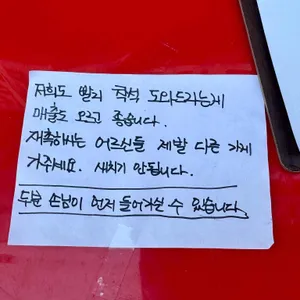 저희도 빨리 착석 도와드리는게
매출도 오르고 좋습니다.
재촉하는 어르신들 제발 다른 가게
가주세요. 새치기 안됩니다.
두분 손님이 먼저 들어가실 수 있습니다.